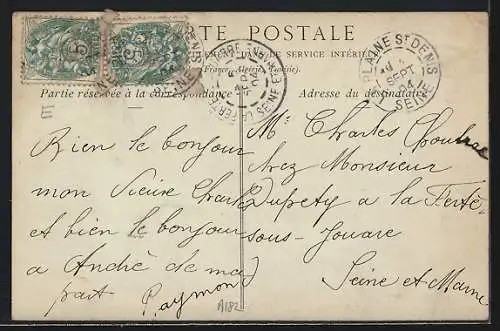 CARTE POSTALE
CE COTÉ EST EXCLUSIVEMENT DU SERVICE INTÉRIEUR
(France, Algérie, Tunisie).
Partie réservée à la correspondance
Adresse du destinataire
PLAINE ST DENIS
SEPT
SEINE
LA FERTÉ
SEINE ET
5
5
Bien le bonjour
mon Vieux Charle
et bien le bonjour
a André de ma
part Raymond
Mr Charles
chez Monsieur
Duprety a la Ferté
sous-Jouare
Seine et Marne
A182